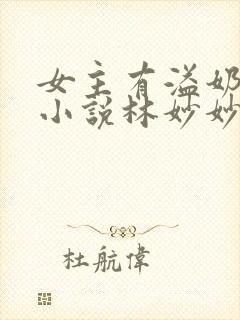 女主有溢奶
小說林妙妙
杜航偉